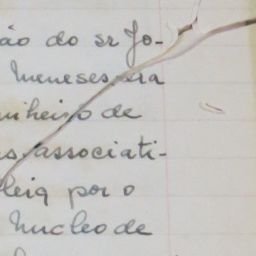 ão do sr Jo-
Meneses era
nheiro de
s associati-
leia por o
Nucleo de